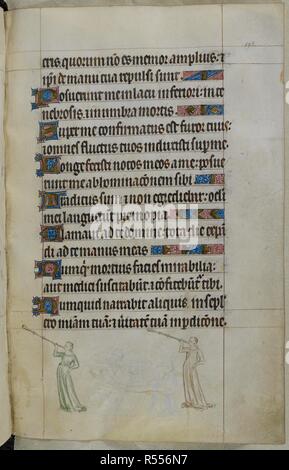 eris, quorum nō es memor amplius: ⁊
ip̄i de manu tua repulsi sunt.
Posuerunt me in lacu inferiori: in te
nebrosis. ⁊ in umbra mortis.
Super me confirmatus est furor tuus:
⁊ omnes fluctus tuos induxisti super me.
Longe fecisti notos meos a me: posue
runt me abhominacōem sibi.
Traditus sum ⁊ non egrediebar: oculi
mei languerunt pre inopia.
Clamaui ad te domine tota die: expan
di ad te manus meas.
Nunquid mortuis facies mirabilia:
aut medici suscitabunt ⁊ cōfitebunt᷑ tibi.
Nunquid narrabit aliquis in sepul
cro miam̄ tuā: ⁊ ueritatē tuā in pdicōne.
alamy
Image ID: R556N7
www.alamy.com